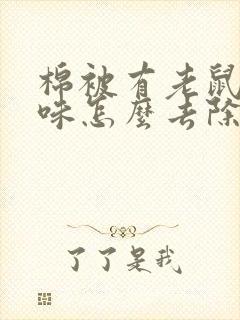 棉被有老鼠
味怎麼去除
了了是我